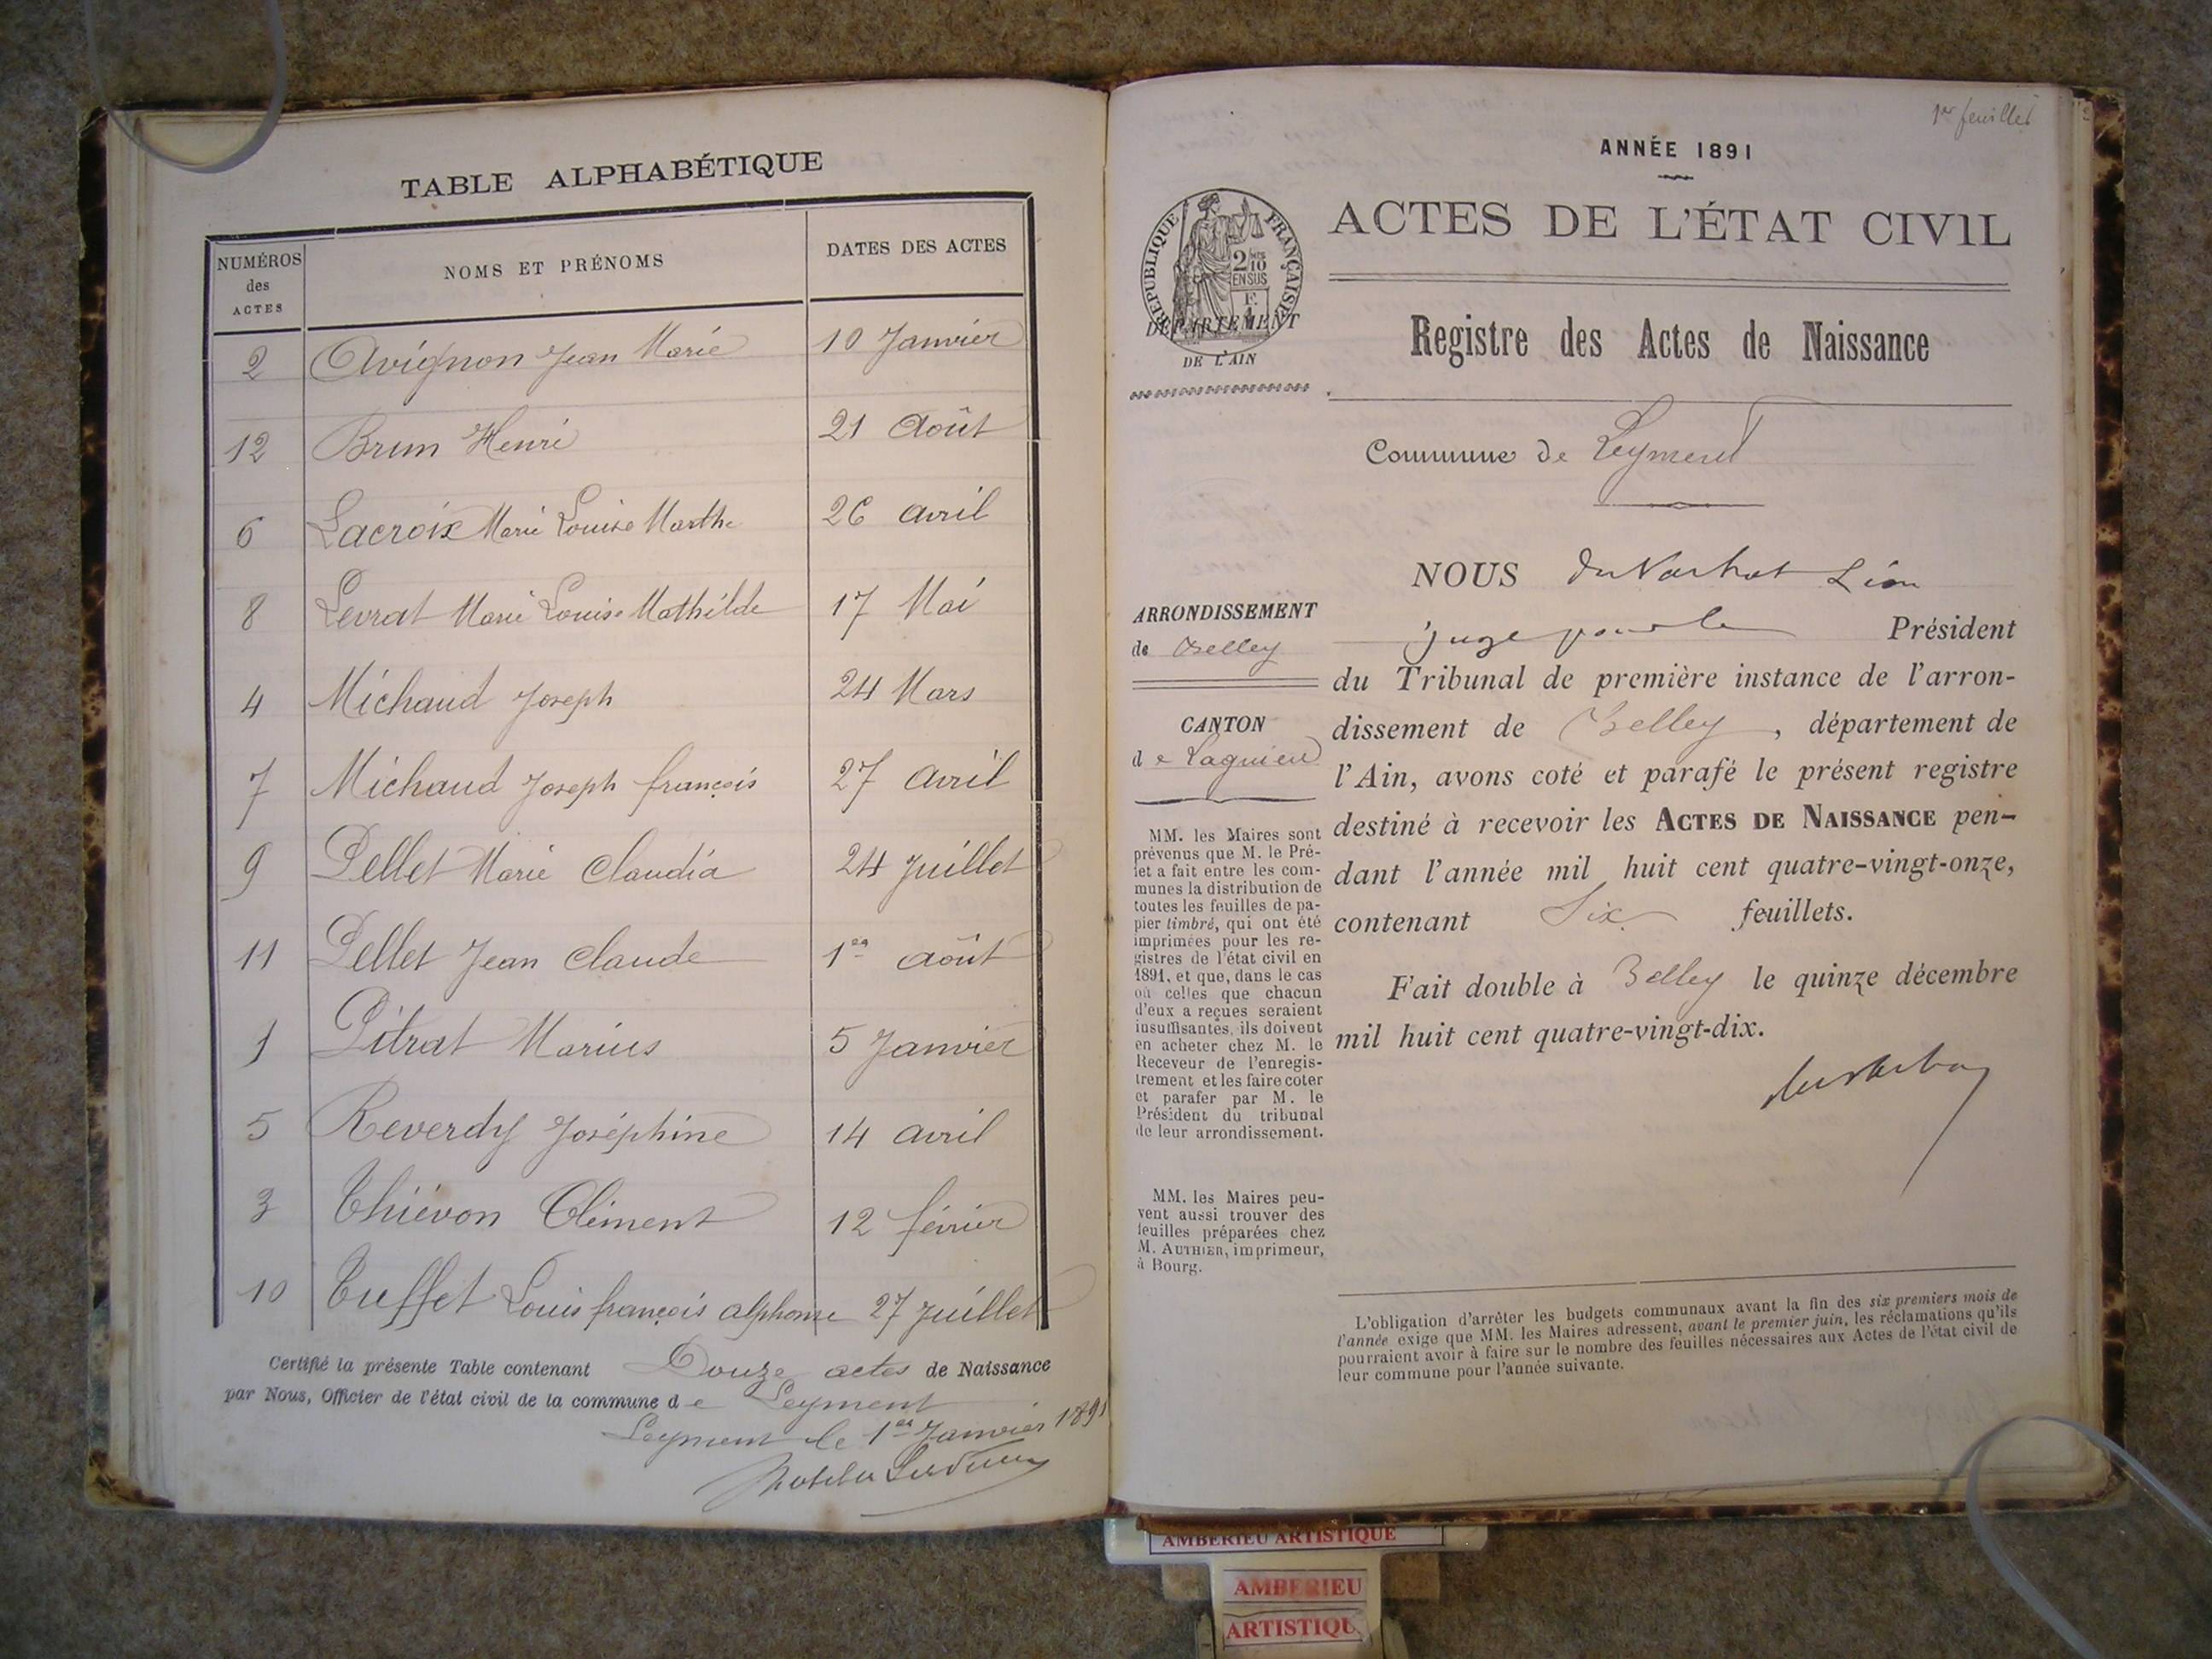 TABLE ALPHABÉTIQUE
NUMÉROS des ACTES NOMS ET PRÉNOMS DATES DES ACTES
2 Avignon Jean Marie 10 Janvier
12 Brun Henri 21 Août
6 Lacroix Marie Louise Marthe 26 avril
8 Levrat Marie Louise Mathilde 17 Mai
4 Michaud Joseph 24 Mars
7 Michaud Joseph françois 27 avril
9 Pellet Marie Claudia 24 Juillet
11 Pellet Jean Claude 1er août
1 Pitrat Marius 5 Janvier
5 Reverdy Joséphine 14 avril
3 Thiévon Clément 12 février
10 Tuffet Louis françois alphonse 27 Juillet
Certifié la présente Table contenant Douze actes de Naissance
par Nous, Officier de l'état civil de la commune de Leyment
Leyment le 1er Janvier 1891
1er feuillet
ANNÉE 1891
RÉPUBLIQUE FRANÇAISE
2/10 EN SUS
DÉPARTEMENT
DE L'AIN
ACTES DE L'ÉTAT CIVIL
Registre des Actes de Naissance
Commune de Leyment
ARRONDISSEMENT
de Belley
CANTON
de Lagnieu
MM. les Maires sont
prévenus que M. le Pré-
fet a fait entre les com-
munes la distribution de
toutes les feuilles de pa-
pier timbré, qui ont été
imprimées pour les re-
gistres de l'état civil en
1891, et que, dans le cas
où celles que chacun
d'eux a reçues seraient
insuffisantes, ils doivent
en acheter chez M. le
Receveur de l'enregis-
trement et les faire coter
et parafer par M. le
Président du tribunal
de leur arrondissement.
MM. les Maires peu-
vent aussi trouver des
feuilles préparées chez
M. AUTHIER, imprimeur,
à Bourg.
NOUS Léon
juge pour le Président
du Tribunal de première instance de l'arron-
dissement de Belley, département de
l'Ain, avons coté et parafé le présent registre
destiné à recevoir les ACTES DE NAISSANCE pen-
dant l'année mil huit cent quatre-vingt-onze,
contenant Six feuillets.
Fait double à Belley le quinze décembre
mil huit cent quatre-vingt-dix.
L'obligation d'arrêter les budgets communaux avant la fin des six premiers mois de
l'année exige que MM. les Maires adressent, avant le premier juin, les réclamations qu'ils
pourraient avoir à faire sur le nombre des feuilles nécessaires aux Actes de l'état civil de
leur commune pour l'année suivante.
AMBERIEU ARTISTIQUE
AMBERIEU
ARTISTIQU